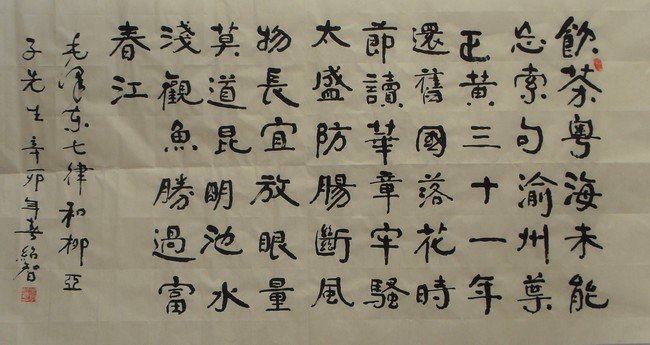 飲茶粵海未能
忘索句渝州葉
正黃三十一年
還舊國落花時
節讀華章牢騷
太盛防腸斷風
物長宜放眼量
莫道昆明池水
淺觀魚勝過富
春江
毛澤東七律和柳亞
子先生辛卯年春紹智